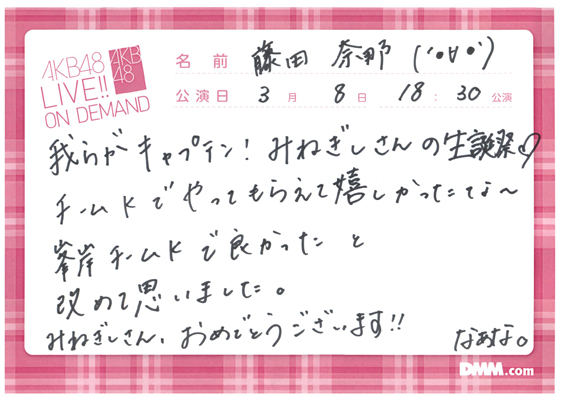 AKB48
LIVE!!
ON DEMAND
AKB
48
名前 藤田 奈那 (･●∀●･)
公演日 3月 8日 18:30公演
我らがキャプテン！みねぎしさんの生誕祭♡
チームKでやってもらえて嬉しかったな〜
峯岸チームKで良かったと
改めて思いました。
みねぎしさん、おめでとうございます!!
なぁな。
DMM.com